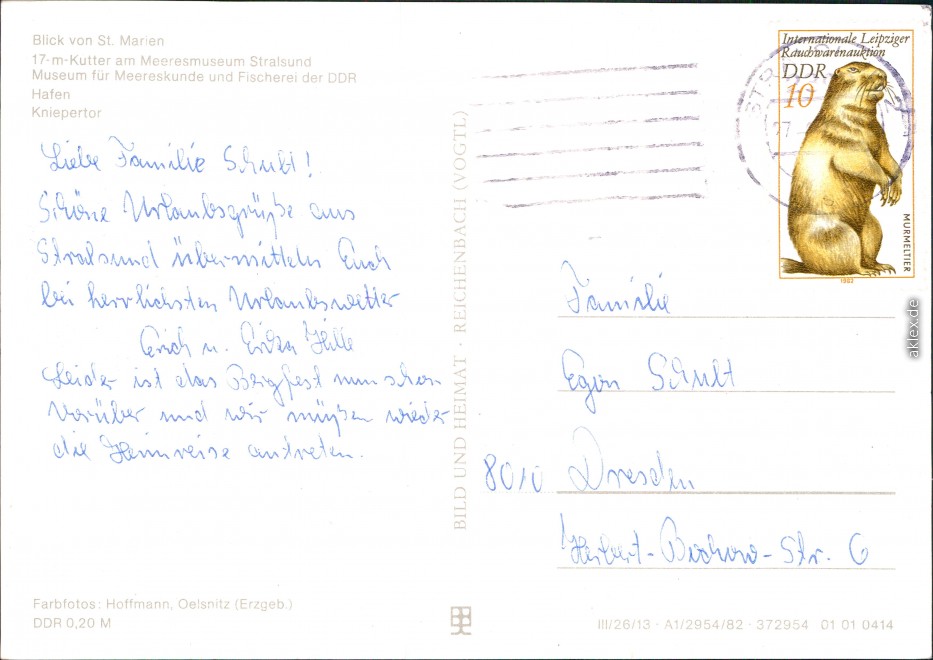 Blick von St. Marien
17-m-Kutter am Meeresmuseum Stralsund
Museum für Meereskunde und Fischerei der DDR
Hafen
Kniepertor
Liebe Familie Schult!
Schöne Urlaubsgrüße aus
Stralsund übermitteln Euch
bei herrlichsten Urlaubswetter
Erich u. Erika Hille
Leider ist das Bergfest nun schon
vorüber und wir müßen wieder
die Heimreise antreten.
Farbfotos: Hoffmann, Oelsnitz (Erzgeb.)
DDR 0,20 M
BILD UND HEIMAT · REICHENBACH (VOGTL)
Internationale Leipziger
Rauchwarenauktion
DDR
10
MURMELTIER
1982
Familie
Egon Schult
8010 Dresden
Herbert-Bochow-Str. 6
III/26/13 · A1/2954/82 · 372954 01 01 0414
aklex.de